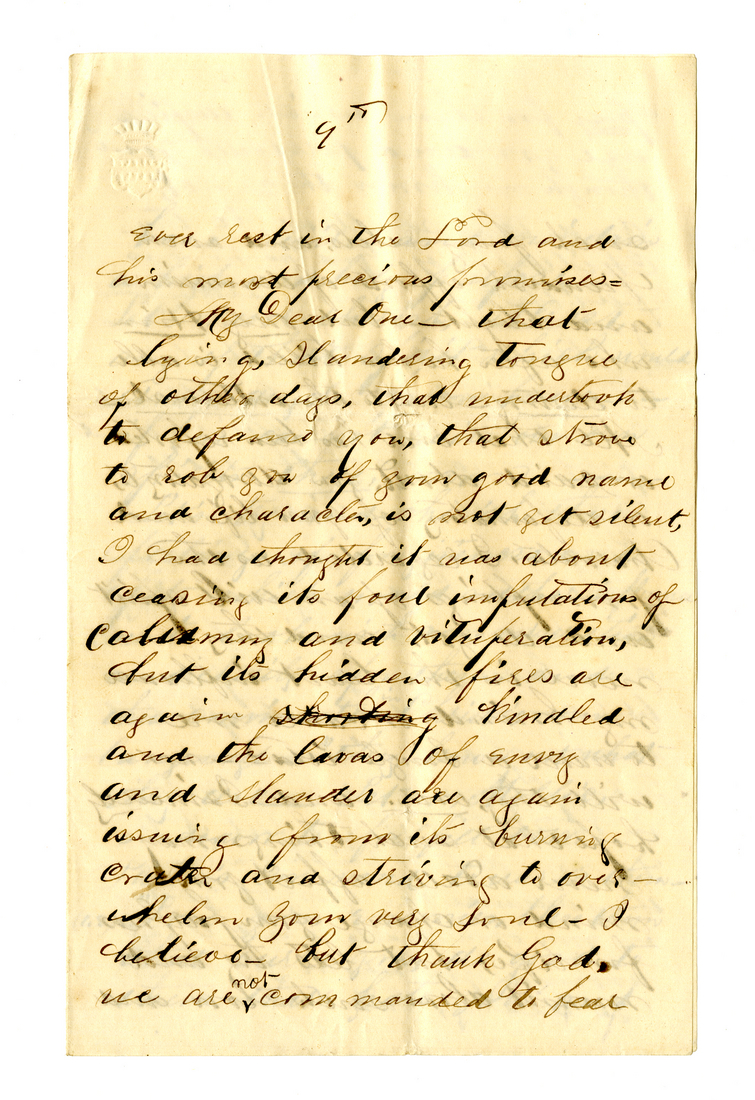 9th
ever rest in the Lord and
his most precious promises=
My Dear One- that
lying, slandering tongue
of other days, that undertook
to defame you, that strove
to rob you of your good name
and character, is not yet silent,
I had thought it was about
ceasing its foul imputations of
calumny and vituperation,
but its hidden fires are
again kindled
and the lavas of envy
and slander are again
issuing from its burning
crater and striving to over-
whelm your very soul- I
believe- but thank God,
we are not commanded to fear